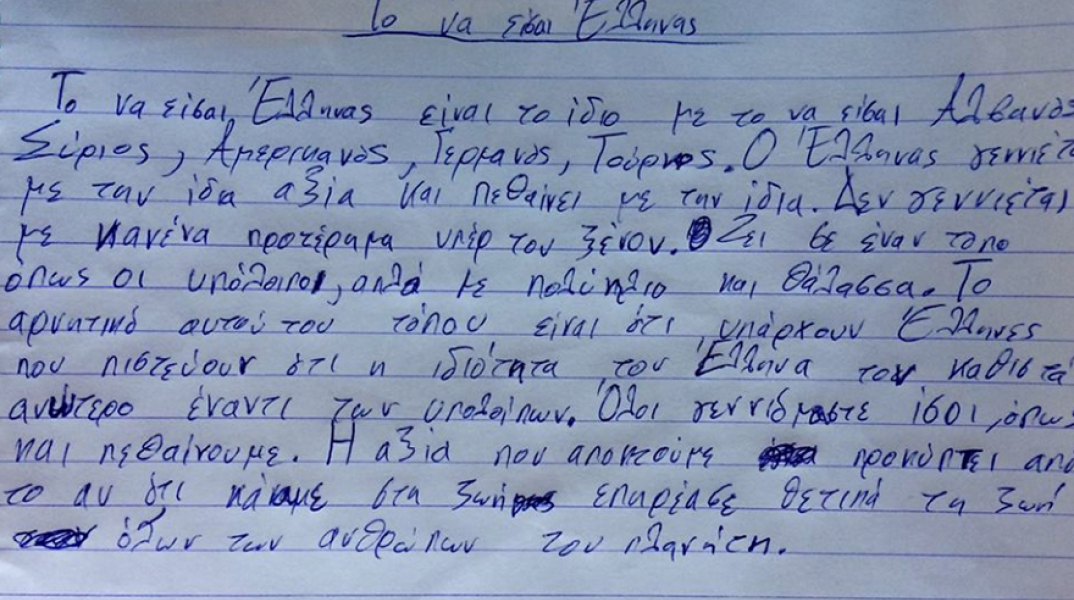 Το να είσαι Έλληνας
Το να είσαι Έλληνας είναι το ίδιο με το να είσαι Αλβανός
Σύριος, Αμερικανός, Γερμανός, Τούρκος. Ο Έλληνας γεννιέτα
με την ίδια αξία και πεθαίνει με την ίδια. Δεν γεννιέται
με κανένα προτέραμα υπέρ του ξένου. Ζει σε έναν τόπο
όπως οι υπόλοιποι, απλά με πολύ ήλιο και θάλασσα. Το
αρνητικό αυτού του τόπου είναι ότι υπάρχουν Έλληνες
που πιστεύουν ότι η ιδιότητα του Έλληνα τον καθιστά
ανώτερο έναντι των υπολοίπων. Όλοι γεννιόμαστε ίσοι, όπως
και πεθαίνουμε. Η αξία που αποκτούμε προκύπτει από
το αν ότι κάναμε στη ζωή επηρέασε θετικά τη ζωή
όλων των ανθρώπων του πλανήτη.